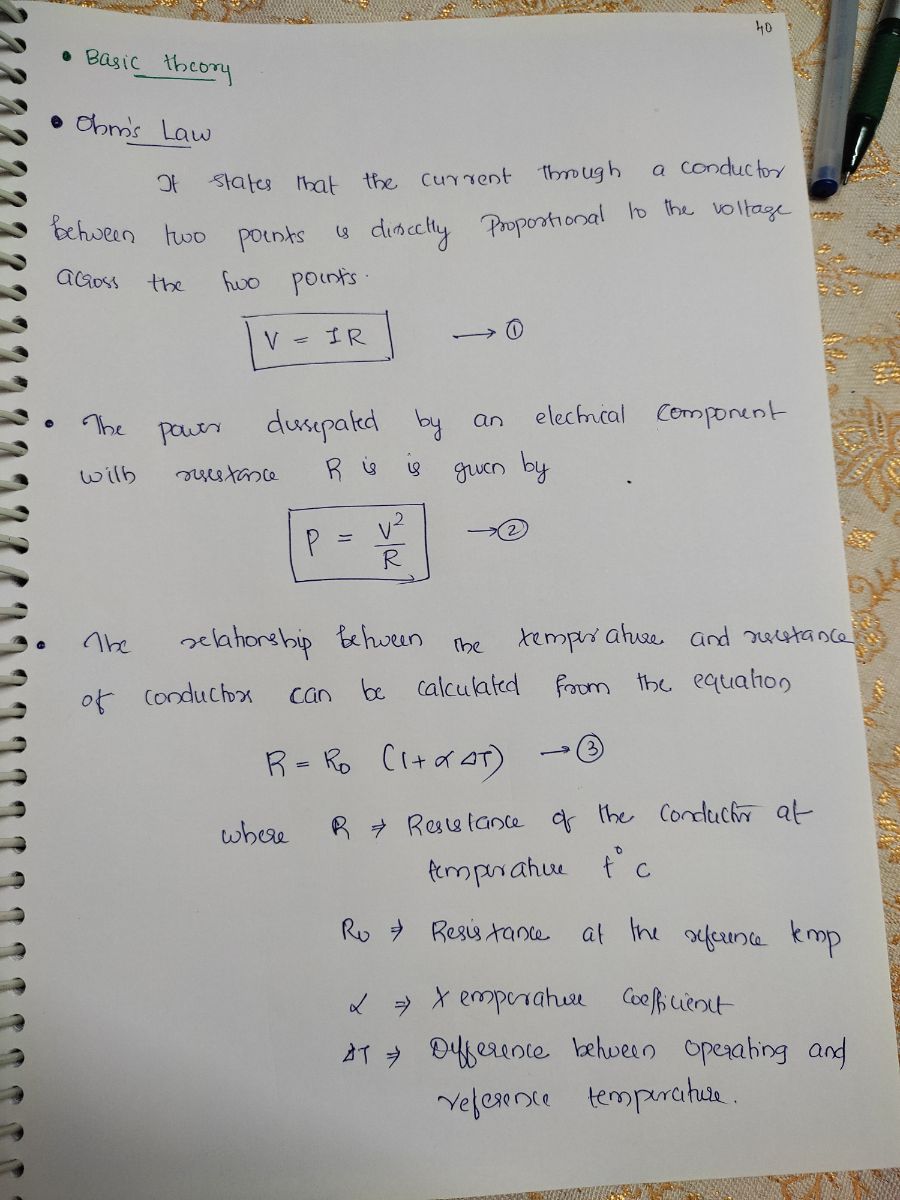 40
• Basic theory
• Ohm's Law
It states that the current through a conductor
between two points is directly Proportional to the voltage
across the two points.
V = IR → ①
• The power dissepated by an electrical component
with resistance R is is given by
P = V²/R → ②
• The relationship between the temperature and resistance
of conductors can be calculated from the equation
R = R₀ (1 + α ΔT) → ③
where R ⇒ Resistance of the conductor at
temperature t° c
R₀ ⇒ Resistance at the reference temp
α ⇒ Temperature Coefficient
ΔT ⇒ Difference between operating and
reference temperature.